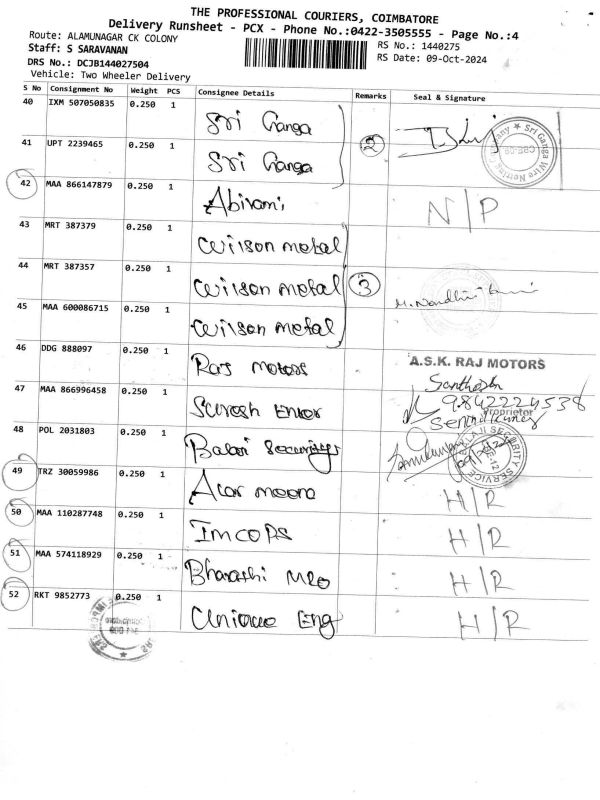 THE PROFESSIONAL COURIERS, COIMBATORE
Delivery Runsheet - PCX - Phone No.:0422-3505555 - Page No.:4
Route: ALAMUNAGAR CK COLONY
RS No.: 1440275
Staff: S SARAVANAN
RS Date: 09-Oct-2024
DRS No.: DCJB144027504
Vehicle: Two Wheeler Delivery
S No Consignment No Weight PCS Consignee Details Remarks Seal & Signature
40 IXM 507050835 0.250 1 Sri Ganga
41 UPT 2239465 0.250 1 Sri Ganga 2
42 MAA 866147879 0.250 1 Abirami N/P
43 MRT 387379 0.250 1 Wilson metal
44 MRT 387357 0.250 1 Wilson metal 3
45 MAA 600086715 0.250 1 Wilson metal
46 DDG 888097 0.250 1 Raj motors A.S.K. RAJ MOTORS
Santhosh
Proprietor
47 MAA 866996458 0.250 1 Suresh Enter 9842224538
Senthilkumar
48 POL 2031803 0.250 1 Balaji Security
49 TRZ 30059986 0.250 1 H/R
50 MAA 110287748 0.250 1 Imcops H/R
51 MAA 574118929 0.250 1 Bharathi H/R
52 RKT 9852773 0.250 1 Unique Eng H/R